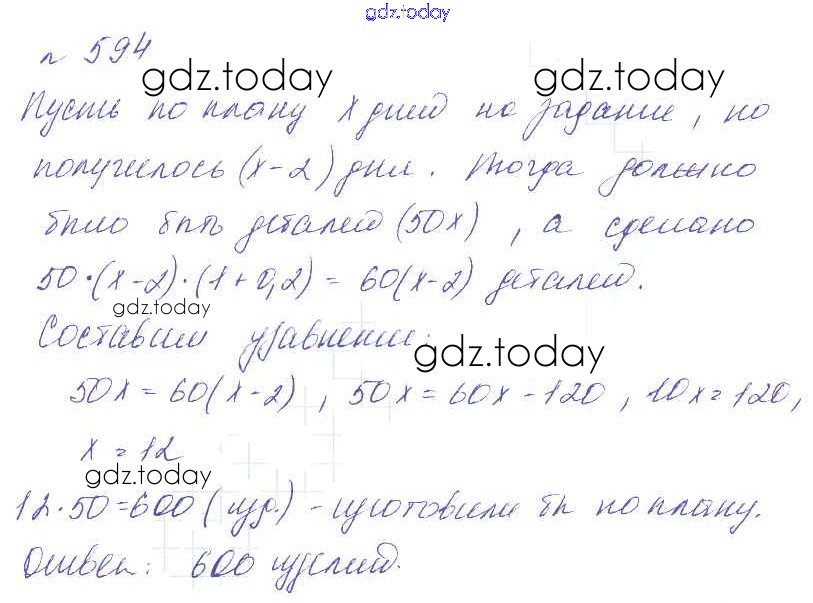 gdz.today
№ 594
gdz.today gdz.today
Пусть по плану x дней на задание, но
получилось (x-2) дня. Тогда должно
было быть деталей (50x), а сделано
50·(x-2)·(1+0,2) = 60(x-2) деталей.
gdz.today
Составим уравнение:
gdz.today
50x = 60(x-2), 50x = 60x - 120, 10x = 120,
x = 12
gdz.today
12·50=600 (изд.) - изготовили бы по плану.
Ответ: 600 изделий.